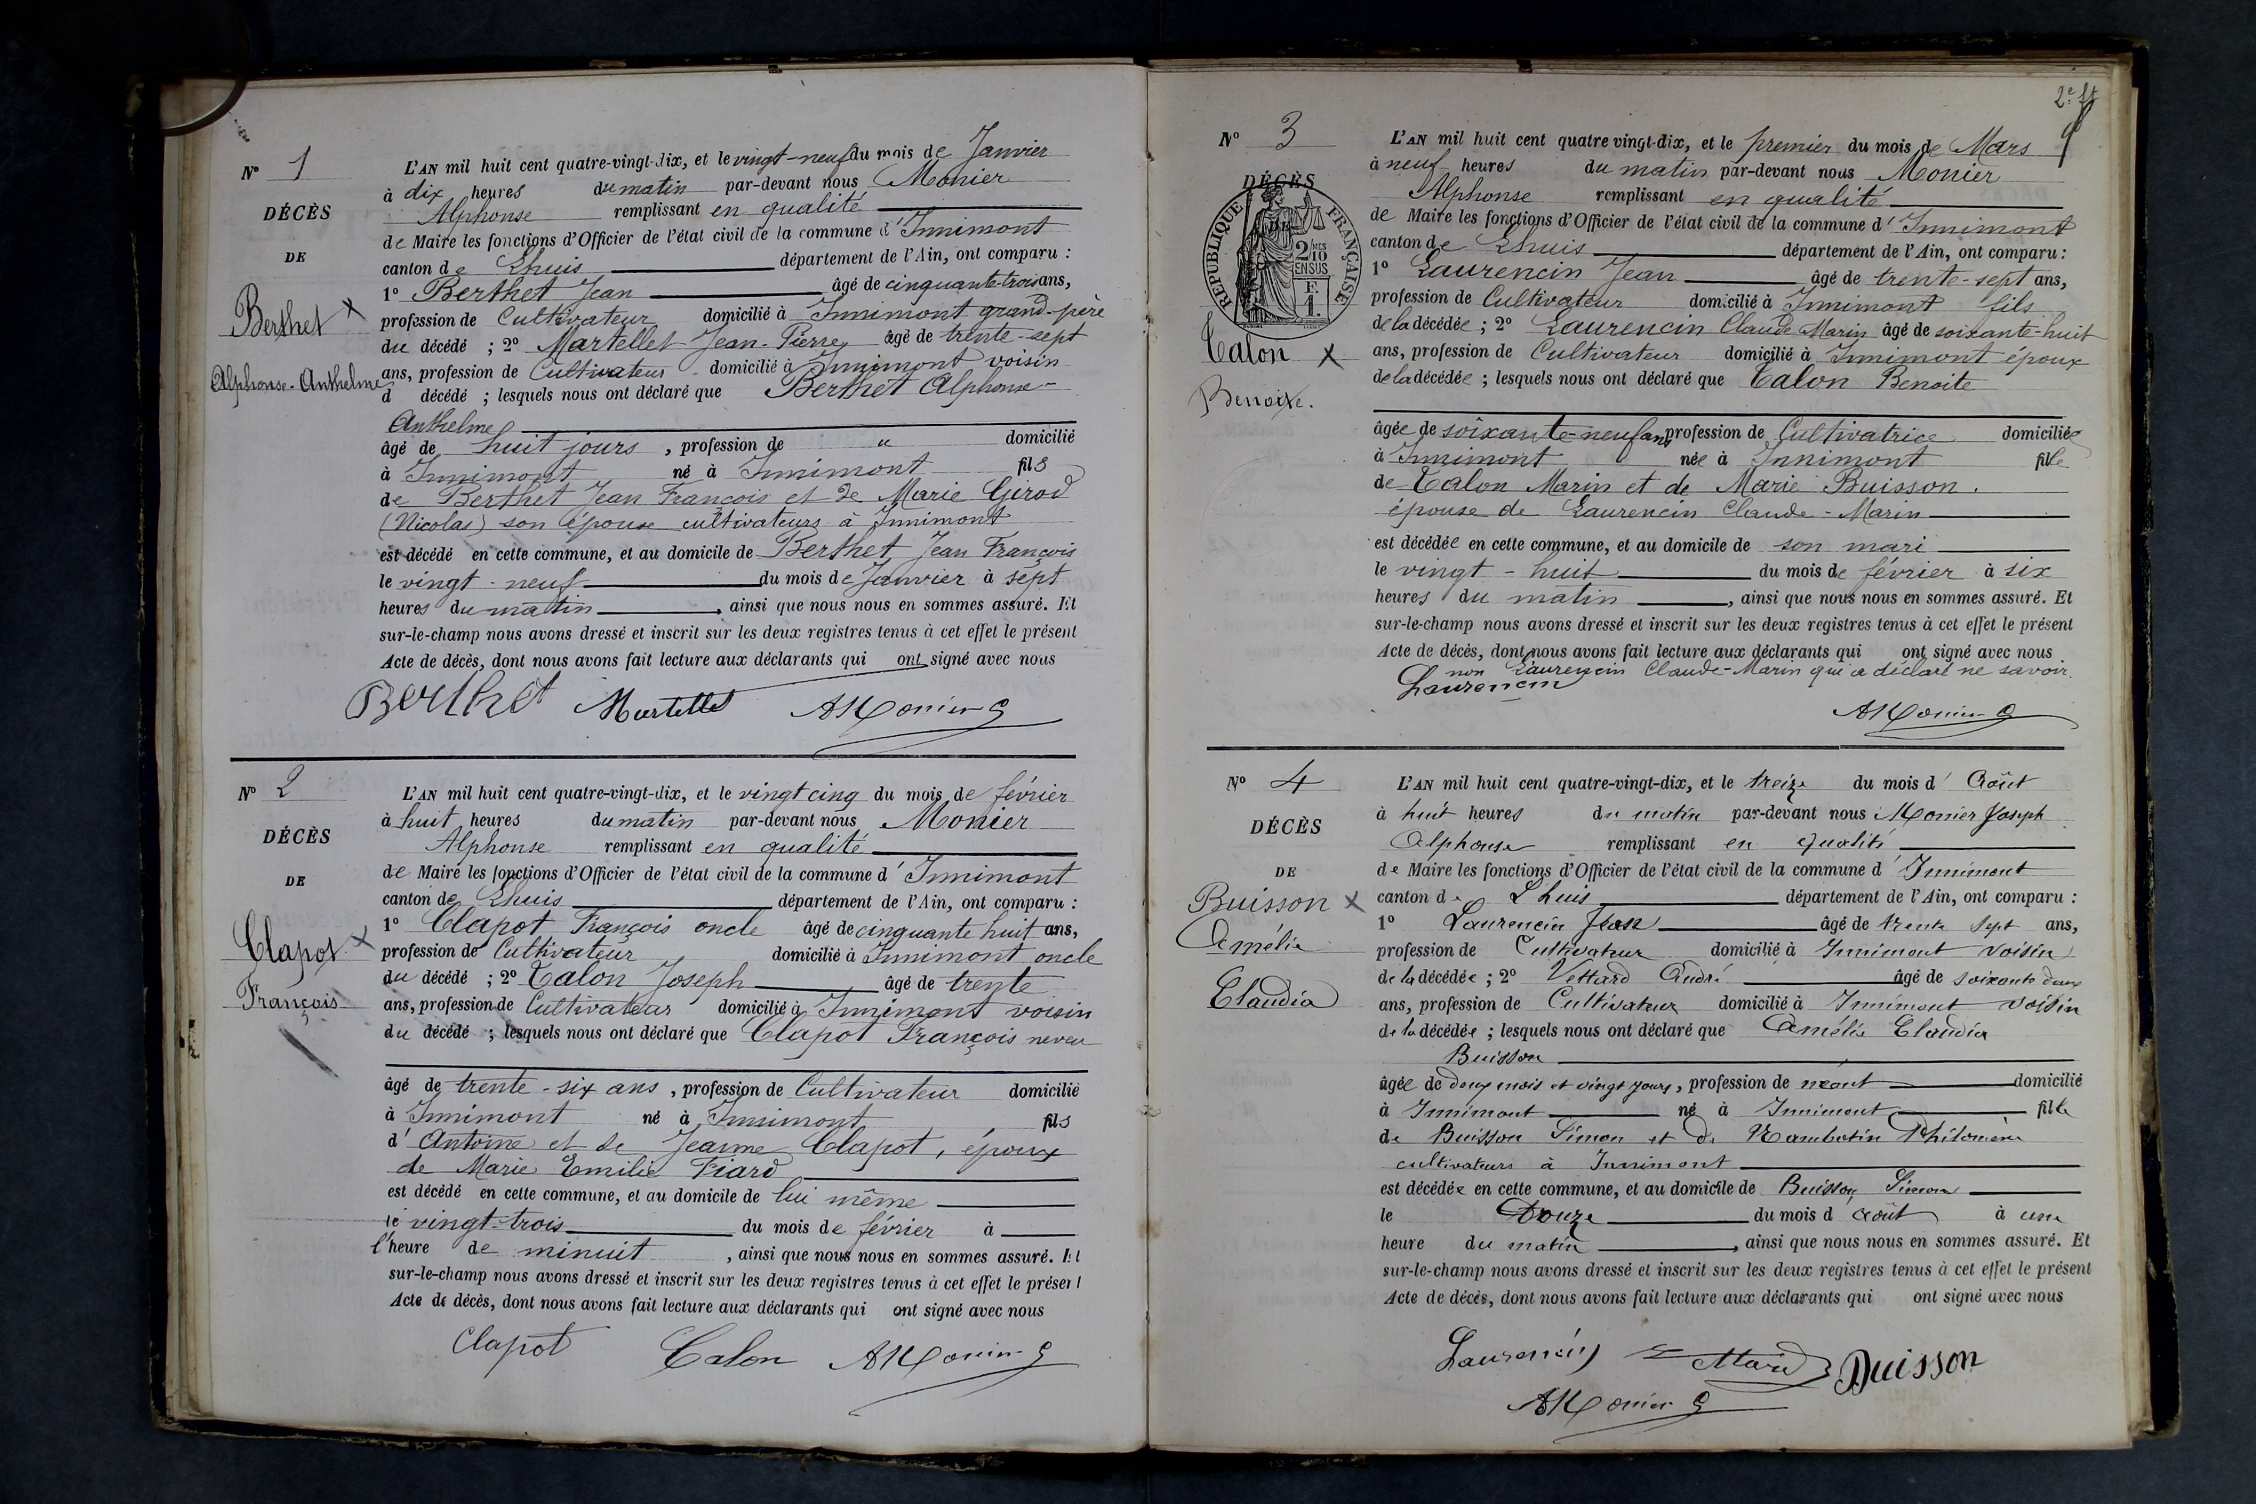 No 1
DÉCÈS
DE
Berthet x
Alphonse-Anthelme
L'AN mil huit cent quatre-vingt-dix, et le vingt-neuf du mois de Janvier
à dix heures du matin par-devant nous Monier
Alphonse remplissant en qualité
de Maire les fonctions d'Officier de l'état civil de la commune d'Innimont
canton de Lhuis département de l'Ain, ont comparu :
1o Berthet Jean âgé de cinquante-trois ans,
profession de Cultivateur domicilié à Innimont grand-père
du décédé ; 2o Martellet Jean-Pierre âgé de trente-sept
ans, profession de Cultivateur domicilié à Innimont voisin
d décédé ; lesquels nous ont déclaré que Berthet Alphonse-
Anthelme
âgé de huit jours, profession de " domicilié
à Innimont né à Innimont fils
de Berthet Jean François et de Marie Girod
(Nicolas) son épouse cultivateurs à Innimont
est décédé en cette commune, et au domicile de Berthet Jean François
le vingt-neuf du mois de Janvier à sept
heures du matin, ainsi que nous nous en sommes assuré. Et
sur-le-champ nous avons dressé et inscrit sur les deux registres tenus à cet effet le présent
Acte de décès, dont nous avons fait lecture aux déclarants qui ont signé avec nous
Berthet Martellet AMonier
No 2
DÉCÈS
DE
Clapot x
François
L'AN mil huit cent quatre-vingt-dix, et le vingt cinq du mois de février
à huit heures du matin par-devant nous Monier
Alphonse remplissant en qualité
de Maire les fonctions d'Officier de l'état civil de la commune d'Innimont
canton de Lhuis département de l'Ain, ont comparu :
1o Clapot François oncle âgé de cinquante huit ans,
profession de Cultivateur domicilié à Innimont oncle
du décédé ; 2o Talon Joseph âgé de trente
ans, profession de Cultivateur domicilié à Innimont voisin
du décédé ; lesquels nous ont déclaré que Clapot François neveu
âgé de trente-six ans, profession de Cultivateur domicilié
à Innimont né à Innimont fils
d'Antoine et de Jeanne Clapot, époux
de Marie Emilie Fiard
est décédé en cette commune, et au domicile de lui même
le vingt-trois du mois de février à
l'heure de minuit, ainsi que nous nous en sommes assuré. Et
sur-le-champ nous avons dressé et inscrit sur les deux registres tenus à cet effet le présent
Acte de décès, dont nous avons fait lecture aux déclarants qui ont signé avec nous
Clapot Talon AMonier
No 3
DÉCÈS
DE
RÉPUBLIQUE FRANÇAISE
2/10 EN SUS
F. 1.
Talon x
Benoite.
L'AN mil huit cent quatre vingt-dix, et le premier du mois de Mars
à neuf heures du matin par-devant nous Monier
Alphonse remplissant en qualité
de Maire les fonctions d'Officier de l'état civil de la commune d'Innimont
canton de Lhuis département de l'Ain, ont comparu :
1o Laurencin Jean âgé de trente-sept ans,
profession de Cultivateur domicilié à Innimont fils
de la décédée ; 2o Laurencin Claude Marin âgé de soixante-huit
ans, profession de Cultivateur domicilié à Innimont époux
de la décédée ; lesquels nous ont déclaré que Talon Benoite
âgée de soixante-neuf ans profession de Cultivatrice domiciliée
à Innimont née à Innimont fille
de Talon Marin et de Marie Buisson.
épouse de Laurencin Claude-Marin
est décédée en cette commune, et au domicile de son mari
le vingt-huit du mois de février à six
heures du matin, ainsi que nous nous en sommes assuré. Et
sur-le-champ nous avons dressé et inscrit sur les deux registres tenus à cet effet le présent
Acte de décès, dont nous avons fait lecture aux déclarants qui ont signé avec nous
non Laurencin Claude-Marin qui a déclaré ne savoir.
Laurencin
AMonier
No 4
DÉCÈS
DE
Buisson x
Amélie
Claudia
L'AN mil huit cent quatre-vingt-dix, et le treize du mois d'Août
à huit heures du matin par-devant nous Monier Joseph
Alphonse remplissant en qualité
de Maire les fonctions d'Officier de l'état civil de la commune d'Innimont
canton de Lhuis département de l'Ain, ont comparu :
1o Laurencin Jean âgé de trente sept ans,
profession de Cultivateur domicilié à Innimont voisin
de la décédée ; 2o Vettard André âgé de soixante deux
ans, profession de Cultivateur domicilié à Innimont voisin
de la décédée ; lesquels nous ont déclaré que Amélie Claudia
Buisson
âgée de deux mois et vingt jours, profession de néant domicilié
à Innimont né à Innimont fille
de Buisson Simon et de Rambotin Philomène
cultivateurs à Innimont
est décédée en cette commune, et au domicile de Buisson Simon
le Douze du mois d'Août à une
heure du matin, ainsi que nous nous en sommes assuré. Et
sur-le-champ nous avons dressé et inscrit sur les deux registres tenus à cet effet le présent
Acte de décès, dont nous avons fait lecture aux déclarants qui ont signé avec nous
Laurencin Vettard Buisson
AMonier